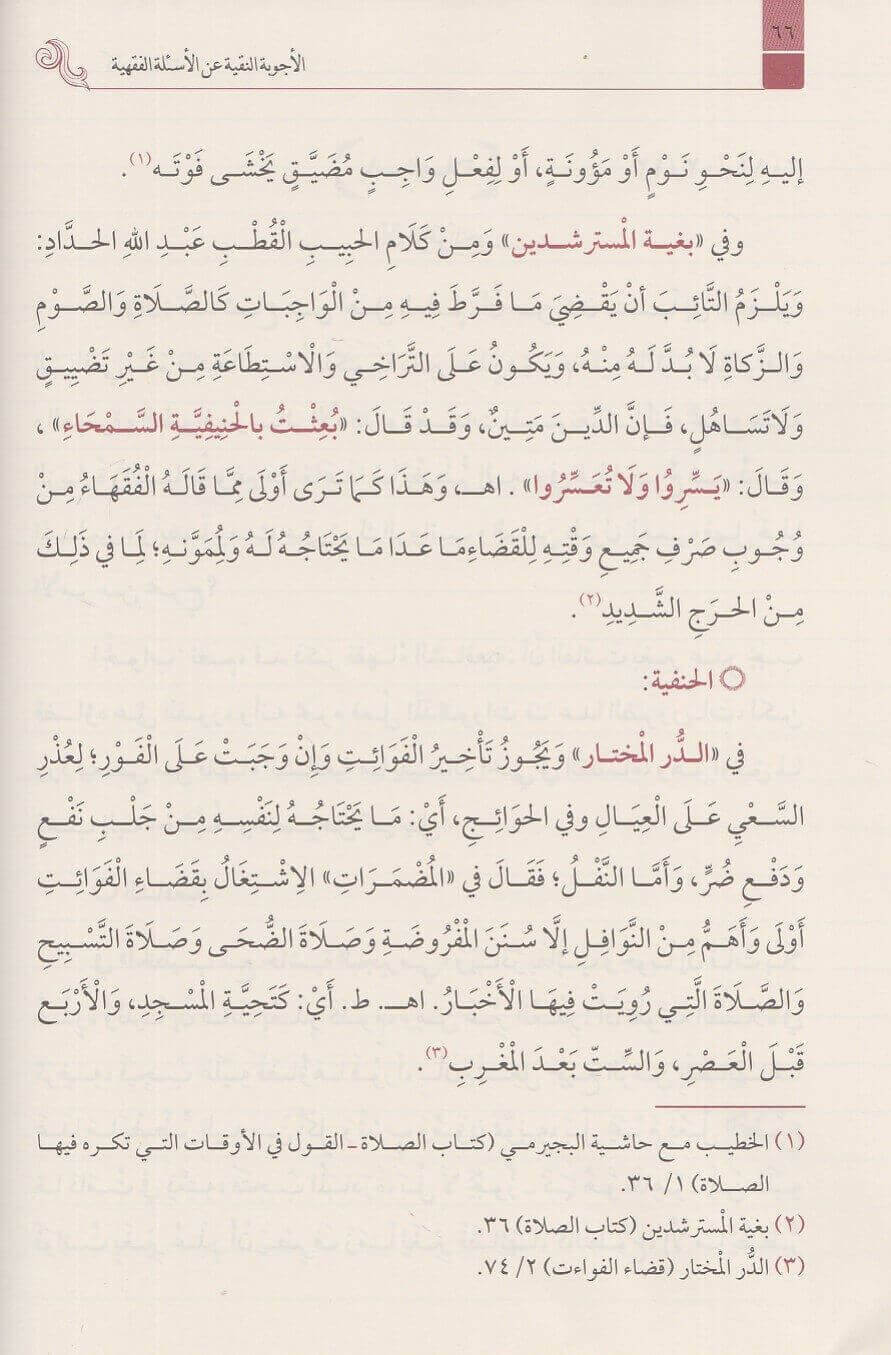 ٦٦
الأجوبة النقية عن الأسئلة الفقهية
إليهِ لِنَحْوِ نَوْمٍ أَوْ مَؤُونَةٍ، أَوْ لِفِعْلِ وَاجِبٍ مُضَيَّقٍ يَخْشَى فَوْتَه(١).
وفي «بغية الْمسترشدين» وَمِنْ كَلَامِ الحبِيبِ الْقُطْبِ عَبْدِ اللهِ الحدَّادِ:
وَيَلْزَمُ التَّائِبَ أنْ يَقْضِيَ مَا فَرَّطَ فِيهِ مِنْ الْوَاجِبَاتِ كَالصَّلَاةِ وَالصَّوْمِ
وَالزَّكاةِ لَا بُدَّ لَهُ مِنْهُ، وَيَكُونُ عَلَى التَّرَاخِي وَالْاسْتِطَاعَةِ مِنْ غَيْرِ تَضْيِيقٍ
وَلَاتَسَاهُلٍ، فَإنَّ الدِّينَ مَتِينٌ، وَقَدْ قَالَ: «بُعِثْتُ بالحْنِيفِيَّةِ السَّمْحَاءِ» ،
وَقَالَ: «يَسِّرِوُا وَلَا تُعَسِّرُوا» . اهـ، وَهَذَا كَمَا تَرَى أَوْلَى مِمَّا قَالَهُ الْفُقَهَاءُ مِنْ
وُجُوبِ صَرْفِ جَمِيعِ وَقْتِهِ لِلْقَضَاءِ مَا عَدَا مَا يَحْتَاجُهُ لَهُ وَلِمُمَوَّنِهِ؛ لِمَا في ذَلِكَ
مِنْ الحرَجِ الشَّدِيدِ(٢).
الحنفية:
في «الدُّر الْمختار» وَيَجُوزُ تَأْخِيرُ الْفَوَائِتِ وَإِنْ وَجَبَتْ عَلَى الْفَوْرِ؛ لِعُذْرِ
السَّعْيِ عَلَى الْعِيَالِ وفي الحوَائِجِ، أَيْ: مَا يَحْتَاجُهُ لِنَفْسِهِ مِنْ جَلْبِ نَفْعٍ
وَدَفْعِ ضُرٍّ، وَأَمَّا النَّفْلُ؛ فَقَالَ في «الْمُضْمَرَاتِ» الِاشْتِغَالُ بِقَضَاءِ الْفَوَائِتِ
أَوْلَى وَأَهَمُّ مِنْ النَّوَافِلِ إلَّا سُنَنَ الْمَفْرُوضَةِ وَصَلَاةَ الضُّحَى وَصَلَاةَ التَّسْبِيحِ
وَالصَّلَاةَ الَّتِي رُوِيَتْ فِيهَا الْأَخْبَارُ. اهـ. ط. أَيْ: كَتَحِيَّةِ الْمَسْجِدِ، وَالْأَرْبَعِ
قَبْلَ الْعَصْرِ، وَالسِّتّ بَعْدَ الْمَغْرِبِ(٣).
(١) الخطيب مع حاشية البجيرمي (كتاب الصلاة - القول في الأوقات التي تكره فيها
الصلاة) ١/ ٣٦.
(٢) بغية الْمسترشدين (كتاب الصلاة) ٣٦.
(٣) الدُّر الْمختار (قضاء الفواءت) ٢/ ٧٤.